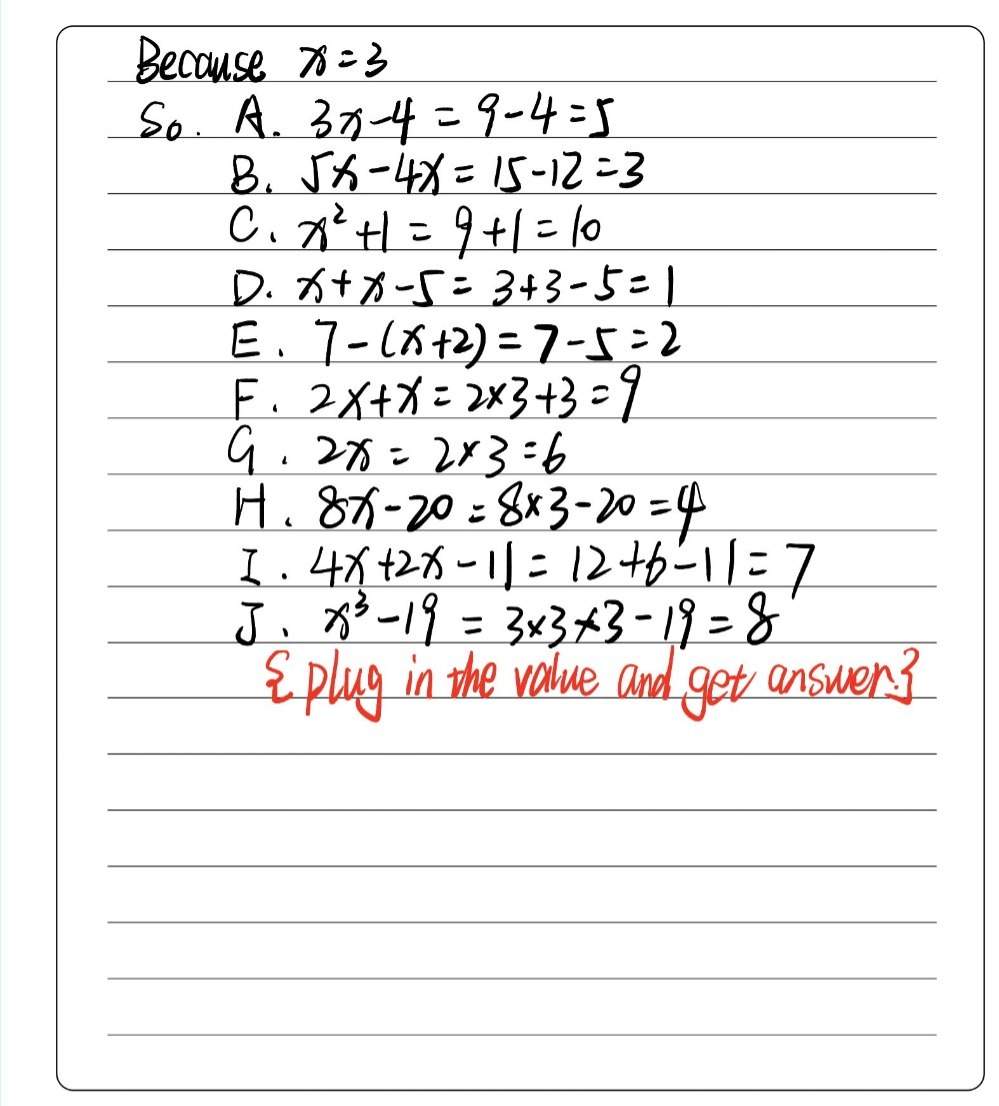 Because x=3
So. A. 3x-4 = 9-4=5
B. 5x-4x= 15-12=3
C. x²+1 = 9+1=10
D. x+x-5= 3+3-5=1
E. 7-(x+2)=7-5=2
F. 2x+x=2×3+3=9
G. 2x= 2×3=6
H. 8x-20=8×3-20=4
I. 4x+2x-11= 12+6-11=7
J. x³-19 = 3×3×3-19=8
{plug in the value and get answer.}